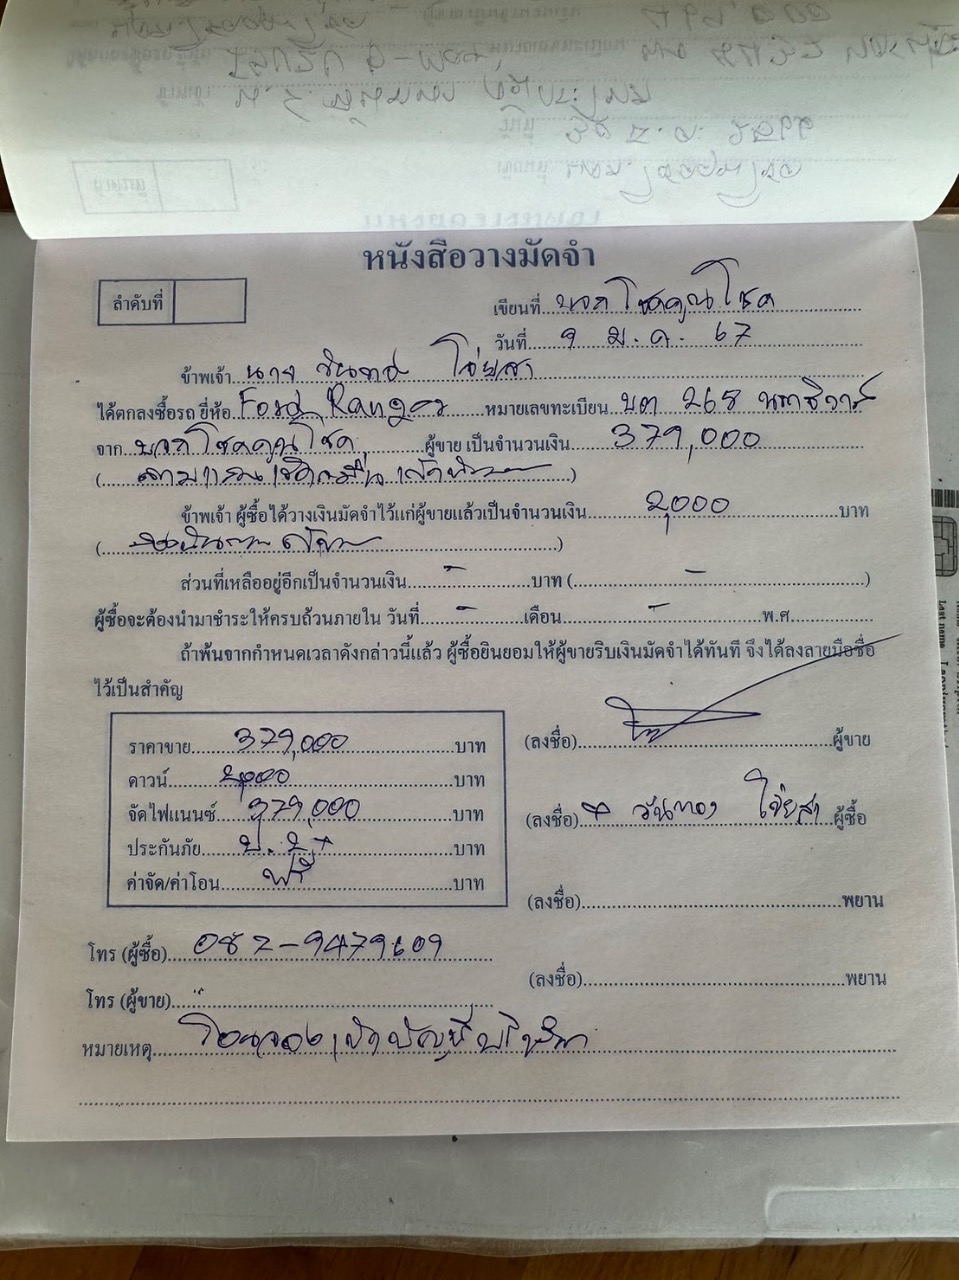 หนังสือวางมัดจำ
ลำดับที่
เขียนที่ บจก โชคคูณโชค
วันที่ 9 ม.ค. 67
ข้าพเจ้า นาง วันทอง ไข่ยสา
ได้ตกลงซื้อรถ ยี่ห้อ Ford Ranger หมายเลขทะเบียน บต 268 นราธิวาส
จาก บจก โชคคูณโชค ผู้ขาย เป็นจำนวนเงิน 379,000
( สามแสนเจ็ดหมื่นเก้าพัน )
ข้าพเจ้า ผู้ซื้อได้วางเงินมัดจำไว้แก่ผู้ขายแล้วเป็นจำนวนเงิน 2,000 บาท
( สองพันบาทถ้วน )
ส่วนที่เหลืออยู่อีกเป็นจำนวนเงิน - บาท ( - )
ผู้ซื้อจะต้องนำมาชำระให้ครบถ้วนภายใน วันที่ - เดือน - พ.ศ.
ถ้าพ้นจากกำหนดเวลาดังกล่าวนี้แล้ว ผู้ซื้อยินยอมให้ผู้ขายริบเงินมัดจำได้ทันที จึงได้ลงลายมือชื่อ
ไว้เป็นสำคัญ
ราคาขาย 379,000 บาท
ดาวน์ 2,000 บาท
จัดไฟแนนซ์ 379,000 บาท
ประกันภัย ป. 2+ บาท
ค่าจัด/ค่าโอน ฟรี บาท
(ลงชื่อ) ผู้ขาย
(ลงชื่อ) วันทอง ไข่ยสา ผู้ซื้อ
(ลงชื่อ) พยาน
(ลงชื่อ) พยาน
โทร (ผู้ซื้อ) 087-9479609
โทร (ผู้ขาย)
หมายเหตุ โอนจองเข้าบัญชีบริษัท